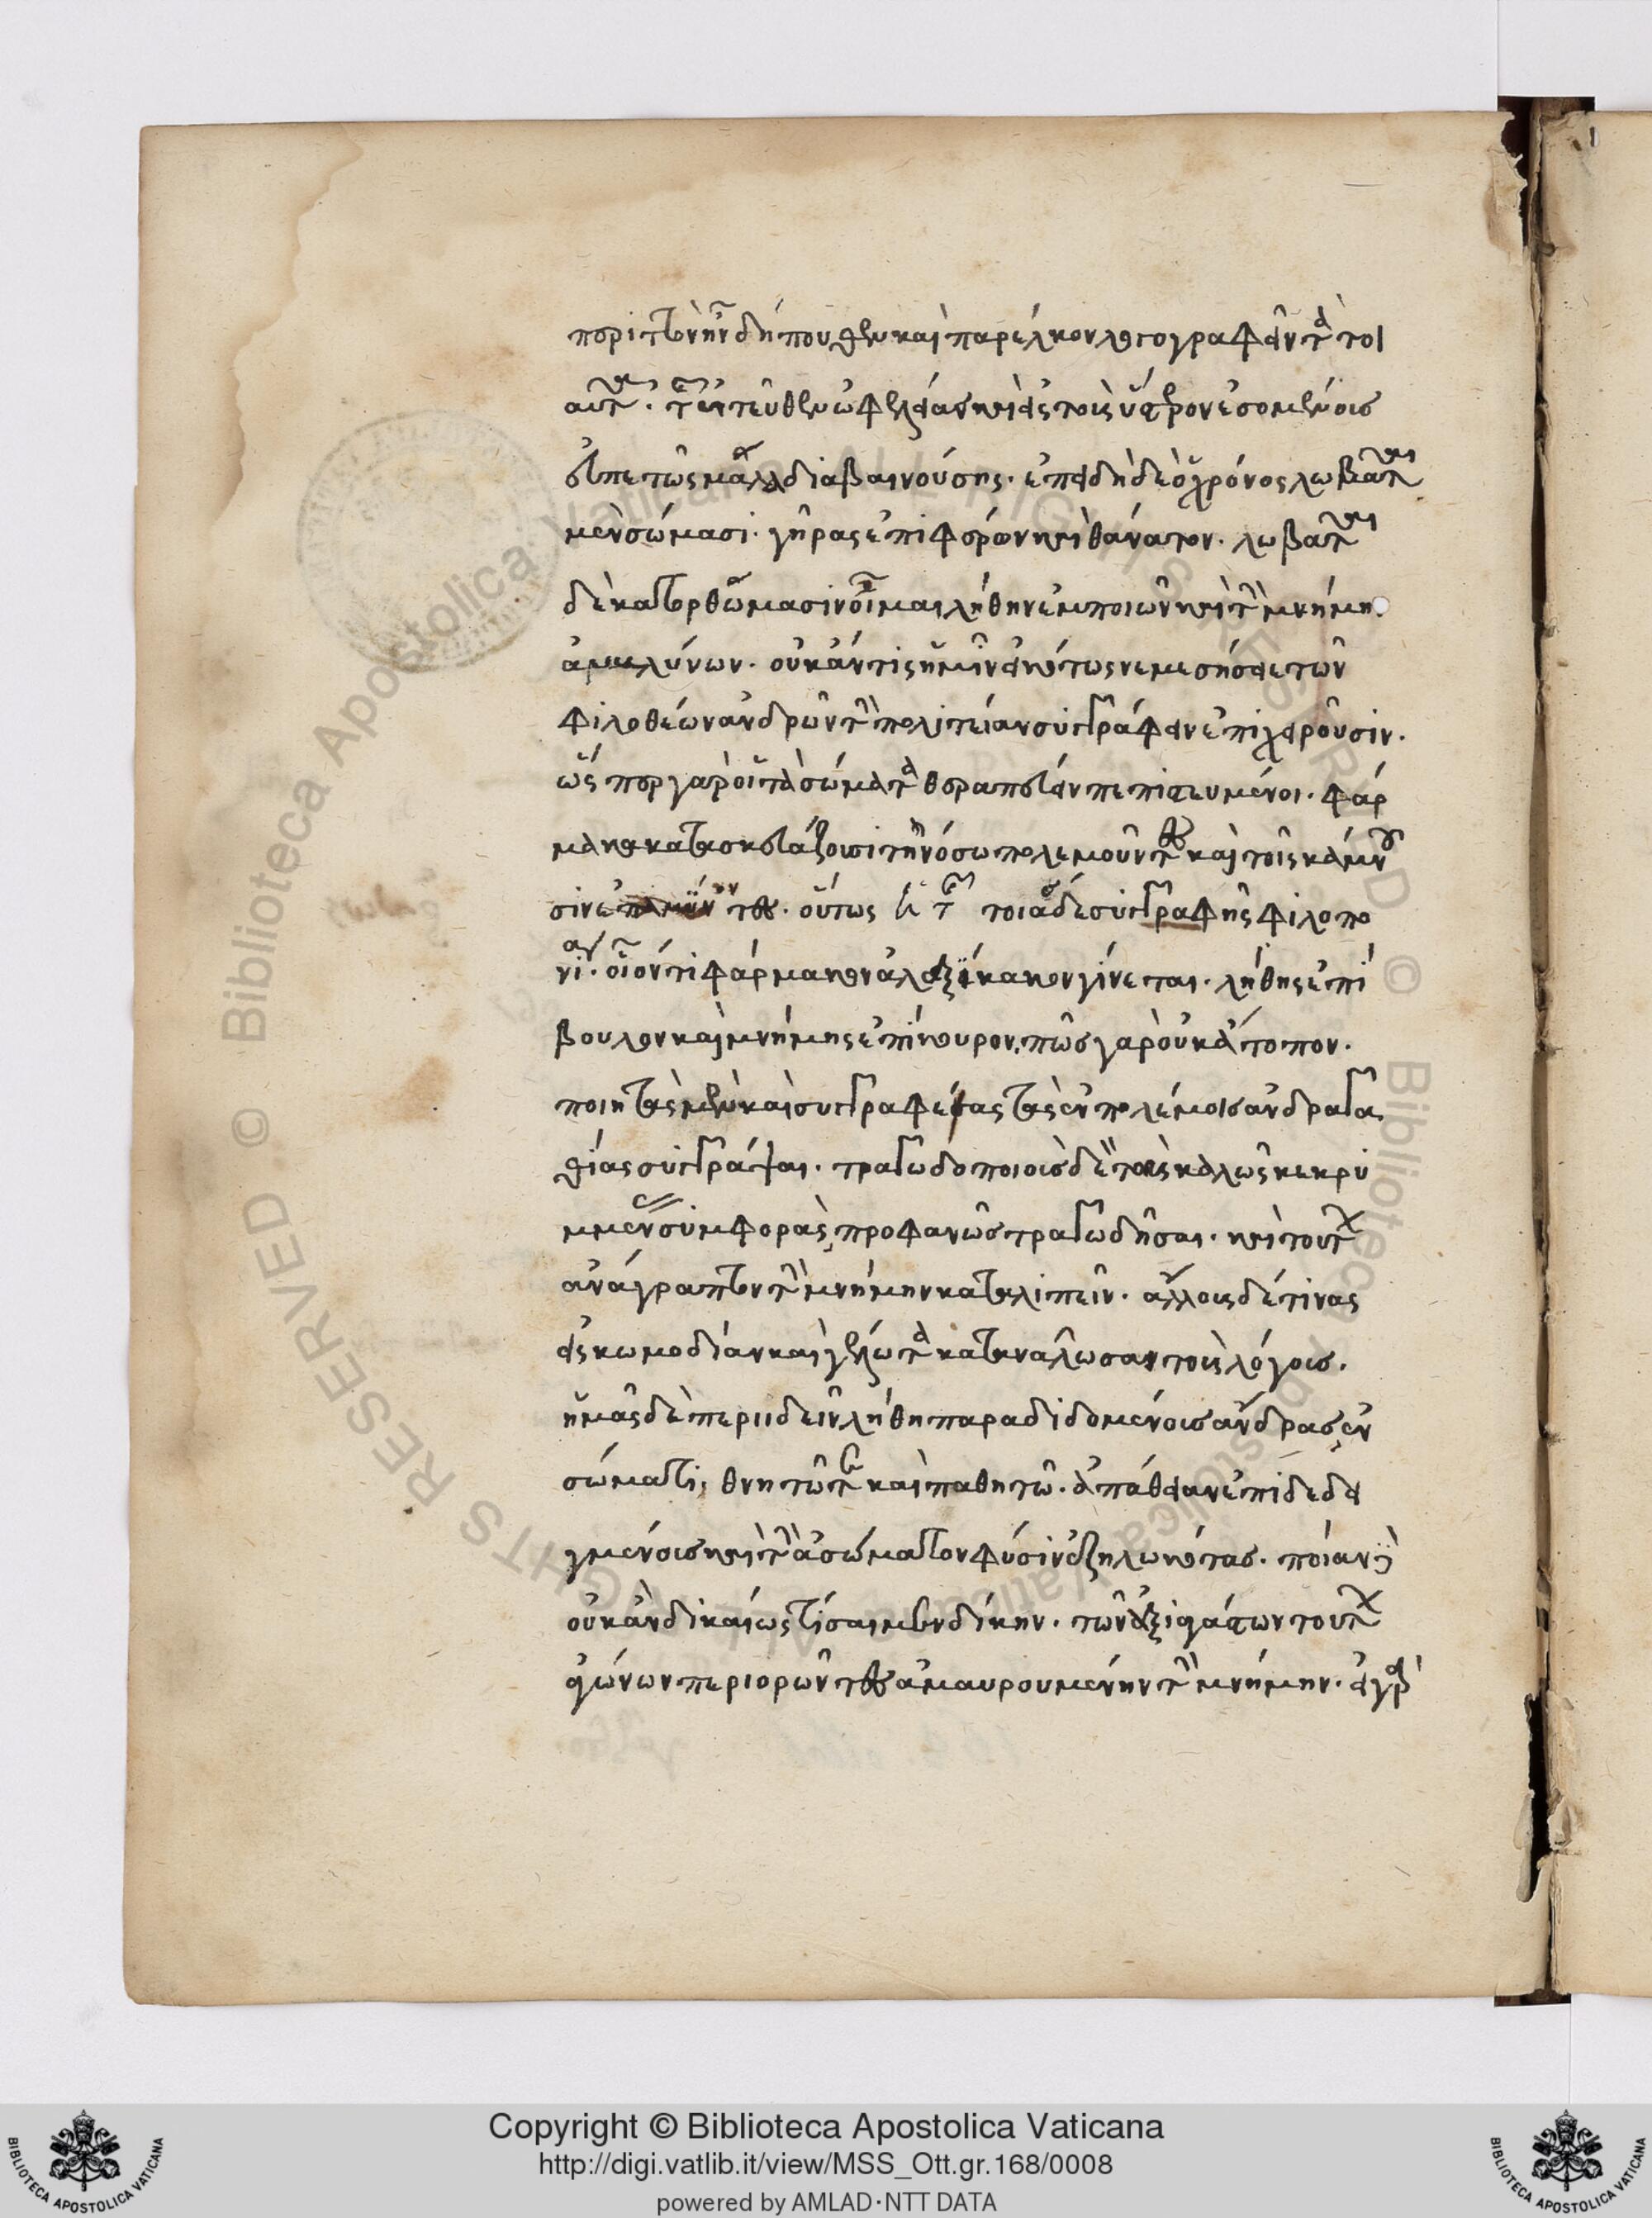 περιττὸν ἦν δήπουθεν καὶ παρέλκον λογογραφεῖν τὰ τοι
αῦτα. τῆς ἐντεῦθεν ὠφελείας καὶ εἰς τοὺς ὕστερον ἐσομένους
εὐπετῶς μάλα διαβαινούσης. ἐπειδὴ δὲ ὁ χρόνος λωβᾶται
μὲν σώμασι. γῆρας ἐπιφέρων καὶ θάνατον. λωβᾶται
δὲ κατορθώμασιν οἶμαι λήθην ἐμποιῶν καὶ τὴν μνήμην
ἀμβλύνων. οὐκ ἄν τις ἡμῖν εἰκότως νεμεσήσειε τῶν
φιλοθέων ἀνδρῶν τὴν πολιτείαν συγγράφειν ἐπιχειροῦσιν.
ὥσπερ γὰρ οἱ τὰ σώματα θεραπεύειν πεπιστευμένοι. φάρ
μακα κατασκευάζουσι τῇ νόσῳ πολεμοῦντες καὶ τοῖς κάμνου
σιν ἐπαμύνοντες. οὕτως ἡ τῆς τοιᾶσδε συγγραφῆς φιλοπο
νία. οἷόν τι φάρμακον ἀλεξίκακον γίνεται. λήθης ἐπί
βουλον καὶ μνήμης ἐπίκουρον. πῶς γὰρ οὐκ ἄτοπον.
ποιητὰς μὲν καὶ συγγραφέας τὰς ἐν πολέμοις ἀνδραγα
θίας συγγράψαι. τραγῳδοποιοὺς δὲ τὰς καλῶς κεκρυ
μμένας συμφορὰς προφανῶς τραγῳδῆσαι. καὶ τούτων
ἀνάγραπτον τὴν μνήμην καταλιπεῖν. ἄλλους δέ τινας
εἰς κωμῳδίαν καὶ γέλωτα καταναλῶσαι τοὺς λόγους.
ἡμᾶς δὲ περιιδεῖν λήθῃ παραδιδομένους ἄνδρας ἐν
σώματι θνητῷ τε καὶ παθητῷ. ἀπάθειαν ἐπιδεδει
γμένους καὶ τὴν ἀσώματον φύσιν ἐζηλωκότας. ποίαν δὲ
οὐκ ἂν δικαίως τίσαιμεν δίκην. τῶν ἀξιαγάστων τούτων
ἀγώνων περιορῶντες ἀμαυρουμένην τὴν μνήμην. εἰ γὰρ